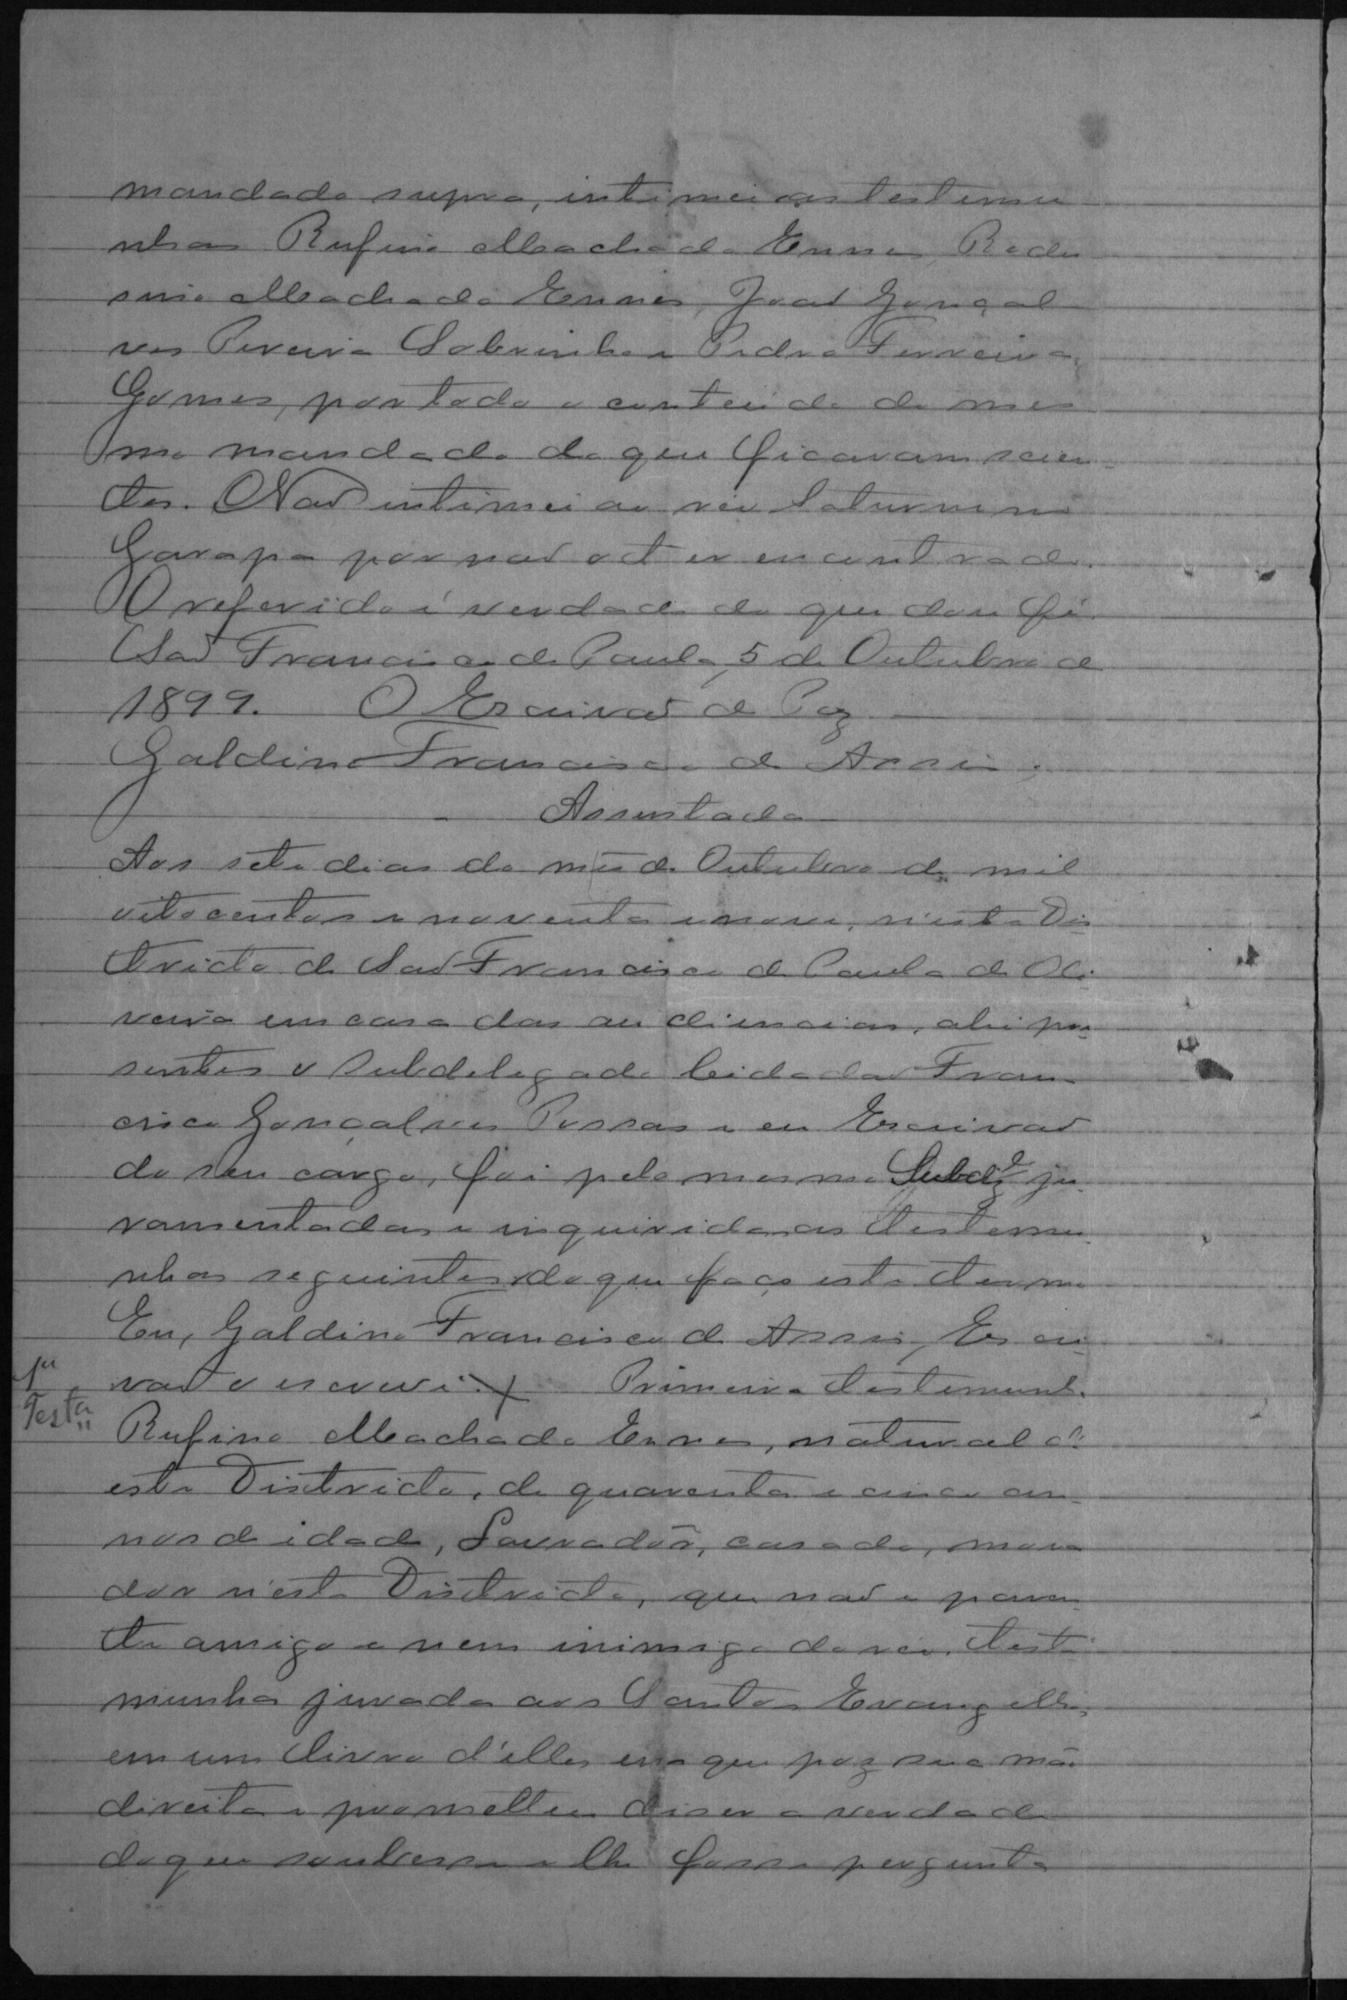 mandado supra, intimei as testemu
nhas Rufino Machado Ennes, Rodu
sino Machado Ennes, João Gonçal
ves Pereira Sobrinho e Pedro Ferreira
Gomes, por todo o conteúdo do mes
mo mandado do que ficavam scien-
tes. Não intimei ao réo Saturnino
Garapa por não o ter encontrado.
O referido é verdade do que dou fé.
São Francisco de Paula, 5 de Outubro de
1899. O Escrivão de Paz
Galdino Francisco de Assis.
Assentada
Aos sete dias do mês de Outubro de mil
oitocentos e noventa e nove, n'este Dis
tricto de São Francisco de Paula de Oli-
veira em casa das audiencias, ahi pre-
sentes o Subdelegado Cidadão Fran-
cisco Gonçalves Possas e eu Escrivão
do seu cargo, foi pelo mesmo Subdº ju-
ramentadas e inquiridas as testemu-
nhas seguintes do que faço este termo
Eu, Galdino Francisco de Assis, Escri-
vão o escrevi. Primeira testemunh.
1ª
Testª
Rufino Machado Ennes, natural d'
este Districto, de quarenta e cinco an-
nos de idade, Lavrador, casado, mora
dor n'este Districto, que não é paren-
te amigo e nem inimigo do réo, teste
munha jurada aos Santos Evangelhos
em um livro d'elles em que poz sua mão
direita e prometteu diser a verdade
do que soubesse e lhe fosse pergunta